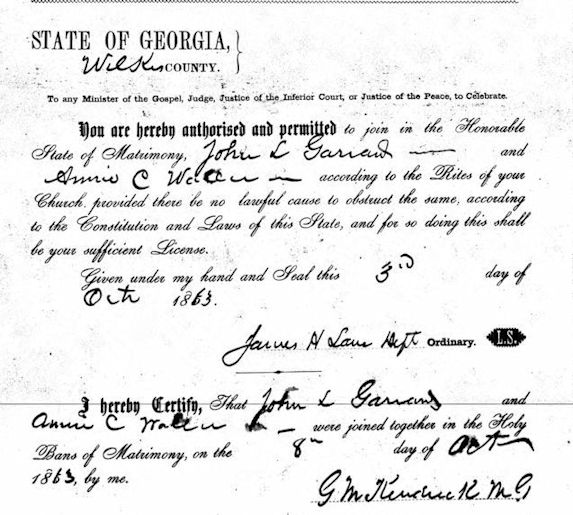 STATE OF GEORGIA,
Wilkes COUNTY.
To any Minister of the Gospel, Judge, Justice of the Inferior Court, or Justice of the Peace, to Celebrate.
You are hereby authorised and permitted to join in the Honorable
State of Matrimony, John L Garrard and
Annie C Waller according to the Rites of your
Church, provided there be no lawful cause to obstruct the same, according
to the Constitution and Laws of this State, and for so doing this shall
be your sufficient License.
Given under my hand and Seal this 3rd day of
Octr 1863.
James H Lane Ordinary. L.S.
I hereby Certify, That John L Garrard and
Annie C Waller were joined together in the Holy
Bans of Matrimony, on the 8th day of Oct
1863, by me.
G M Kendrick M G